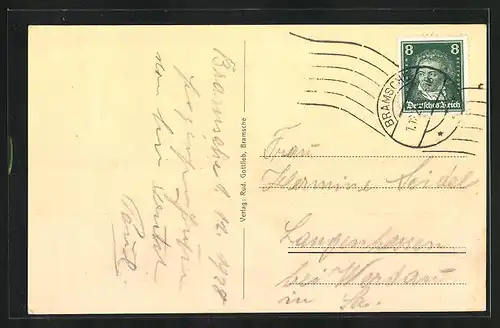 Bramsche 6. 12. 1928
von der Tante
Paul.
Verlag: Rud. Gottlieb, Bramsche
8 8
Deutsches Reich
BRAMSCHE
Frau
Hermine Seidel
Langenhessen
bei Werdau
in Sa.